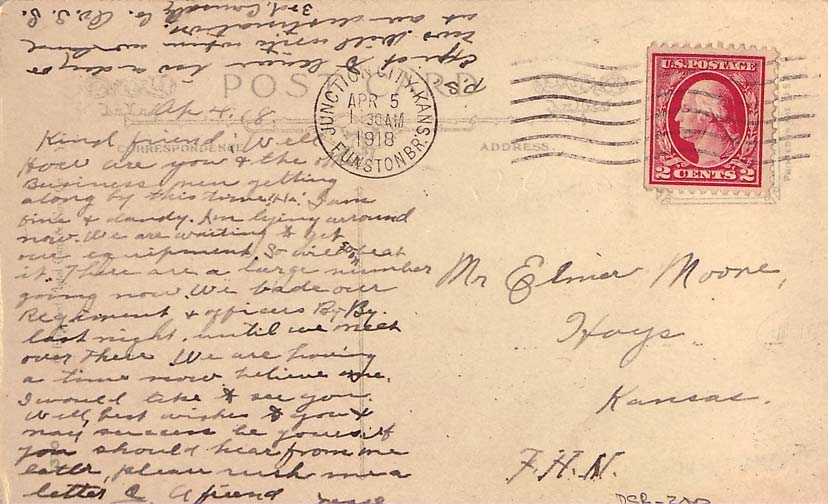 P.S.
Expect to leave in a day or
two Will write when we land
at our destination.
3rd. Casualty Co.
POST CARD
Ap 4. 18.
CORRESPONDENCE
ADDRESS.
JUNCTION CITY, KANS.
APR 5
1 30AM
1918
FUNSTON BR.
U.S. POSTAGE
2 CENTS 2
Kind friend: Well
How are you & the
Business men getting
along by this time, Ha. I am
fine & dandy. Am lying arround
now. We are waiting to get
our equipment, so will beat
it. soon
There are a large number
going now. We bade our
Regiment & officers By-By.
last night, until we meet
over There We are having
a time now believe me.
I would like to see you.
Well, best wishes to you &
may success be yours. if
you should hear from me
later, please rush me a
letter A friend
Mr Elmer Moore,
Hays
Kansas.
F.H.N.